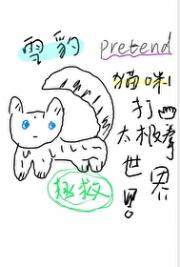 雪豹 pretend
猫咪
打
太极拳
世界!
拯救